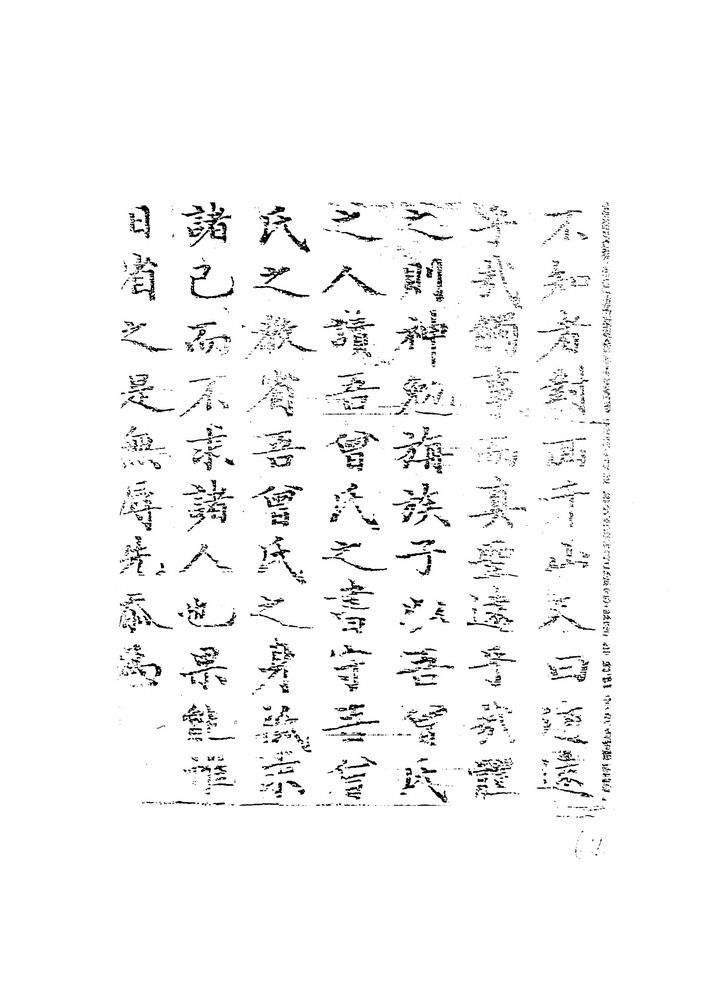 不知者對面千山又曰道邇
乎哉觸事而真聖遠乎哉體
之則神勉旃族子以吾曾氏
之人讀吾曾氏之書守吾曾
氏之教省吾曾氏之身誠求
諸己而不求諸人也果能
日省之是無辱先忝焉